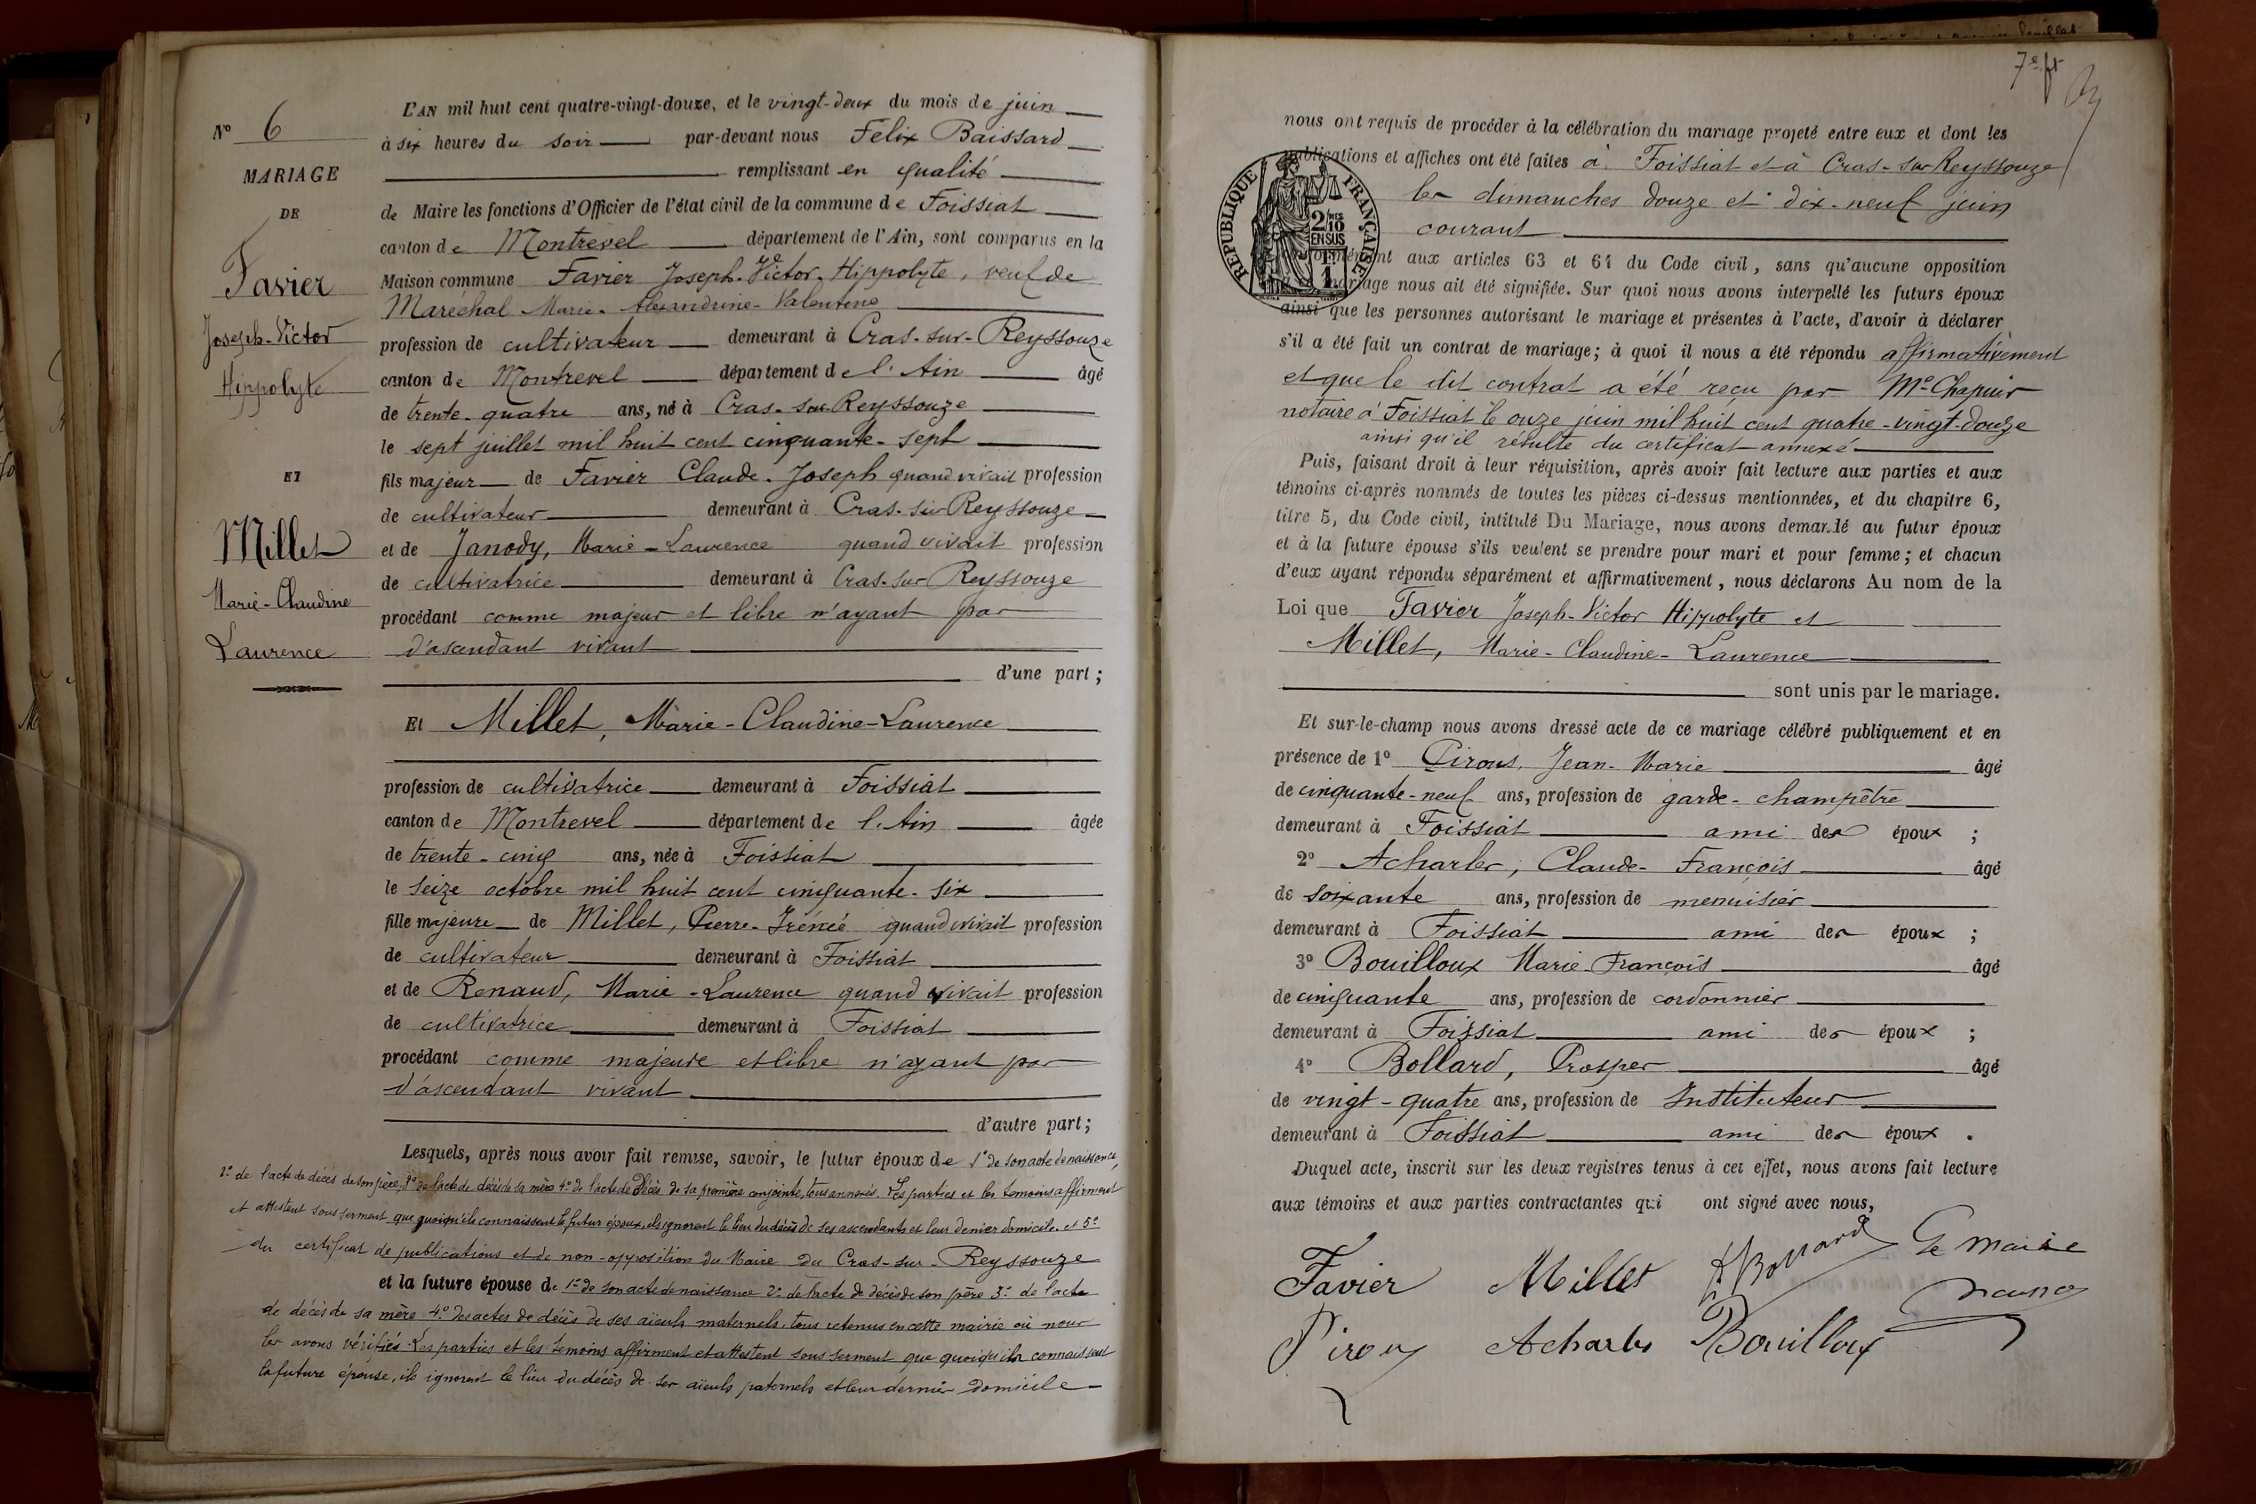 N° 6
MARIAGE
DE
Favier
Joseph-Victor
Hippolyte
ET
Millet
Marie-Claudine
Laurence
L'AN mil huit cent quatre-vingt-douze, et le vingt-deux du mois de juin
à six heures du soir par-devant nous Felix Baissard
remplissant en qualité
de Maire les fonctions d'Officier de l'état civil de la commune de Foissiat
canton de Montrevel département de l'Ain, sont comparus en la
Maison commune Favier Joseph-Victor-Hippolyte, veuf de
Maréchal Marie-Alexandrine-Valentine
profession de cultivateur demeurant à Cras-sur-Reyssouze
canton de Montrevel département de l'Ain âgé
de trente-quatre ans, né à Cras-sur-Reyssouze
le sept juillet mil huit cent cinquante-sept
fils majeur de Favier Claude-Joseph quand vivait profession
de cultivateur demeurant à Cras-sur-Reyssouze
et de Janody, Marie-Laurence quand vivait profession
de cultivatrice demeurant à Cras-sur-Reyssouze
procédant comme majeur et libre n'ayant pas
d'ascendant vivant
d'une part ;
Et Millet, Marie-Claudine-Laurence
profession de cultivatrice demeurant à Foissiat
canton de Montrevel département de l'Ain âgée
de trente-cinq ans, née à Foissiat
le seize octobre mil huit cent cinquante-six
fille majeure de Millet, Pierre-Irénée quand vivait profession
de cultivateur demeurant à Foissiat
et de Renaud, Marie-Laurence quand vivait profession
de cultivatrice demeurant à Foissiat
procédant comme majeure et libre n'ayant pas
d'ascendant vivant
d'autre part ;
Lesquels, après nous avoir fait remise, savoir, le futur époux de 1° de son acte de naissance,
2° de l'acte de décès de son père, 3° de l'acte de décès de sa mère 4° de l'acte de décès de sa première conjointe, tous annexés. Les parties et les temoins affirment
et attestent sous serment que quoiqu'ils connaissent le futur époux, ils ignorent le lieu du décès de ses ascendants et leur dernier domicile. et 5°
du certificat de publications et de non-opposition du Maire du Cras-sur-Reyssouze
et la future épouse de 1° de son acte de naissance 2° de l'acte de décès de son père 3° de l'acte
de décès de sa mère 4° des actes de décès de ses aïeuls maternels, tous retenus en cette mairie où nous
les avons vérifiés. Les parties et les temoins affirment et attestent sous serment que quoiqu'ils connaissent
la future épouse, ils ignorent le lieu du décès de ses aïeuls paternels et leur dernier domicile
7e ft
nous ont requis de procéder à la célébration du mariage projeté entre eux et dont les
publications et affiches ont été faites à Foissiat et à Cras-sur-Reyssouze
les dimanches douze et dix-neuf juin
courant
RÉPUBLIQUE FRANÇAISE
2/10 EN SUS
1
aux articles 63 et 64 du Code civil, sans qu'aucune opposition
mariage nous ait été signifiée. Sur quoi nous avons interpellé les futurs époux
ainsi que les personnes autorisant le mariage et présentes à l'acte, d'avoir à déclarer
s'il a été fait un contrat de mariage; à quoi il nous a été répondu affirmativement
et que le dit contrat a été reçu par Me Chapuis
notaire à Foissiat le onze juin mil huit cent quatre-vingt-douze
ainsi qu'il résulte du certificat annexé
Puis, faisant droit à leur réquisition, après avoir fait lecture aux parties et aux
témoins ci-après nommés de toutes les pièces ci-dessus mentionnées, et du chapitre 6,
titre 5, du Code civil, intitulé Du Mariage, nous avons demandé au futur époux
et à la future épouse s'ils veulent se prendre pour mari et pour femme ; et chacun
d'eux ayant répondu séparément et affirmativement, nous déclarons Au nom de la
Loi que Favier Joseph-Victor Hippolyte et
Millet, Marie-Claudine-Laurence
sont unis par le mariage.
Et sur-le-champ nous avons dressé acte de ce mariage célébré publiquement et en
présence de 1° Piroux, Jean-Marie âgé
de cinquante-neuf ans, profession de garde-champêtre
demeurant à Foissiat ami des époux ;
2° Acharles, Claude-François âgé
de soixante ans, profession de menuisier
demeurant à Foissiat ami des époux ;
3° Bouilloux Marie-François âgé
de cinquante ans, profession de cordonnier
demeurant à Foissiat ami des époux ;
4° Bollard, Prosper âgé
de vingt-quatre ans, profession de Instituteur
demeurant à Foissiat ami des époux.
Duquel acte, inscrit sur les deux registres tenus à cet effet, nous avons fait lecture
aux témoins et aux parties contractantes qui ont signé avec nous,
Favier Millet PBollard Le Maire
Piroux Acharles Bouilloux